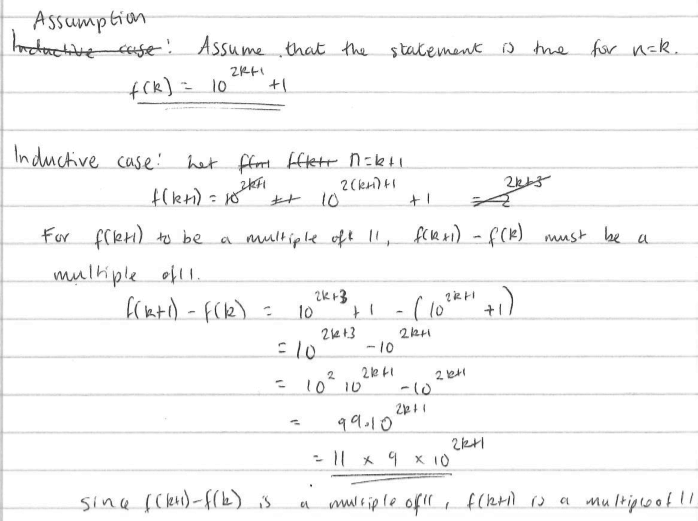 Assumption
Inductive case: Assume that the statement is true for n=k.
f(k) = 10^{2k+1} +1
Inductive case: Let n=k+1
f(k+1) = 10^{2(k+1)+1} +1
For f(k+1) to be a multiple of 11, f(k+1) - f(k) must be a
multiple of 11.
f(k+1) - f(k) = 10^{2k+3} + 1 - (10^{2k+1} +1)
= 10^{2k+3} - 10^{2k+1}
= 10^2 10^{2k+1} - 10^{2k+1}
= 99.10^{2k+1}
= 11 x 9 x 10^{2k+1}
Since f(k+1)-f(k) is a multiple of 11, f(k+1) is a multiple of 11